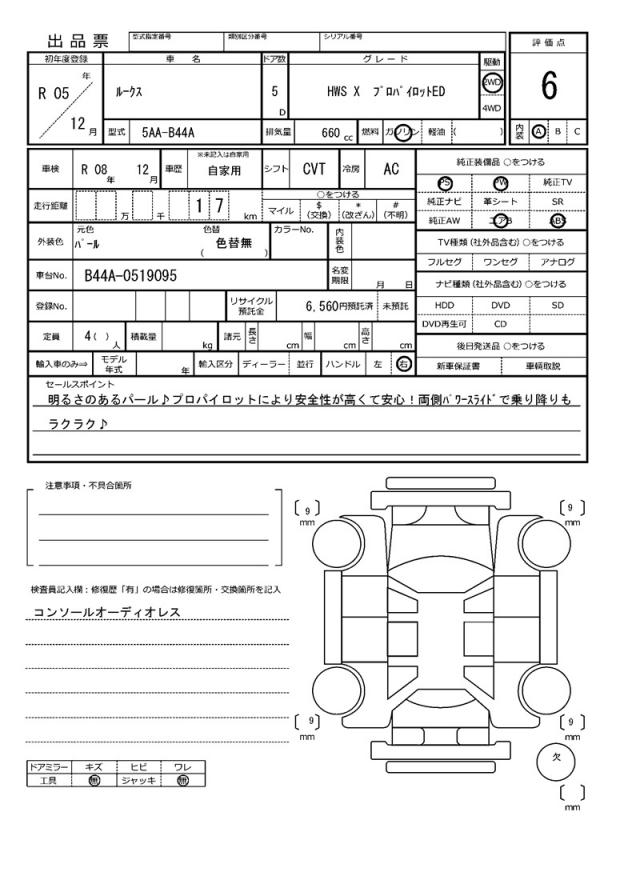 出品票
型式指定番号 類別区分番号 シリアル番号
初年度登録 車名 ドア数 グレード 駆動 評価点
R 05 年 12 月 ルークス 5 D HWS X プロパイロットED 2WD 4WD 6
型式 5AA-B44A 排気量 660 cc 燃料 ガソリン 軽油 ( ) 内装 A B C
車検 R 08 年 12 月 車歴 ※未記入は自家用 自家用 シフト CVT 冷房 AC 純正装備品 ○をつける
PS PW 純正TV
走行距離 万 千 1 7 km ○をつける
マイル $ (交換) * (改ざん) # (不明)
純正ナビ 革シート SR
純正AW エアB ABS
外装色 元色 パール 色替 色替無 ( ) カラーNo. 内装色
TV種類 (社外品含む) ○をつける
フルセグ ワンセグ アナログ
車台No. B44A-0519095 名変期限 月 日
ナビ種類 (社外品含む) ○をつける
登録No. リサイクル預託金 6,560円預託済 未預託
HDD DVD SD
DVD再生可 CD
定員 4 ( ) 人 積載量 kg 諸元 長さ cm 幅 cm 高さ cm
後日発送品 ○をつける
輸入車のみ⇒ モデル年式 年 輸入区分 ディーラー 並行 ハンドル 左 右
新車保証書 車輌取説
セールスポイント
明るさのあるパール♪プロパイロットにより安全性が高くて安心！両側パワースライドで乗り降りも
ラクラク♪
注意事項・不具合箇所
検査員記入欄：修復歴「有」の場合は修復箇所・交換箇所を記入
コンソールオーディオレス
9 mm
9 mm
9 mm
9 mm
欠
mm
ドアミラー キズ ヒビ ワレ
工具 無 ジャッキ 無